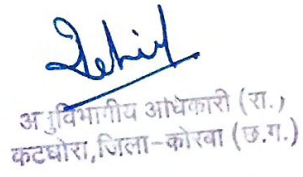 अनुविभागीय अधिकारी (रा.,
कटघोरा, जिला-कोरबा (छ.ग.)